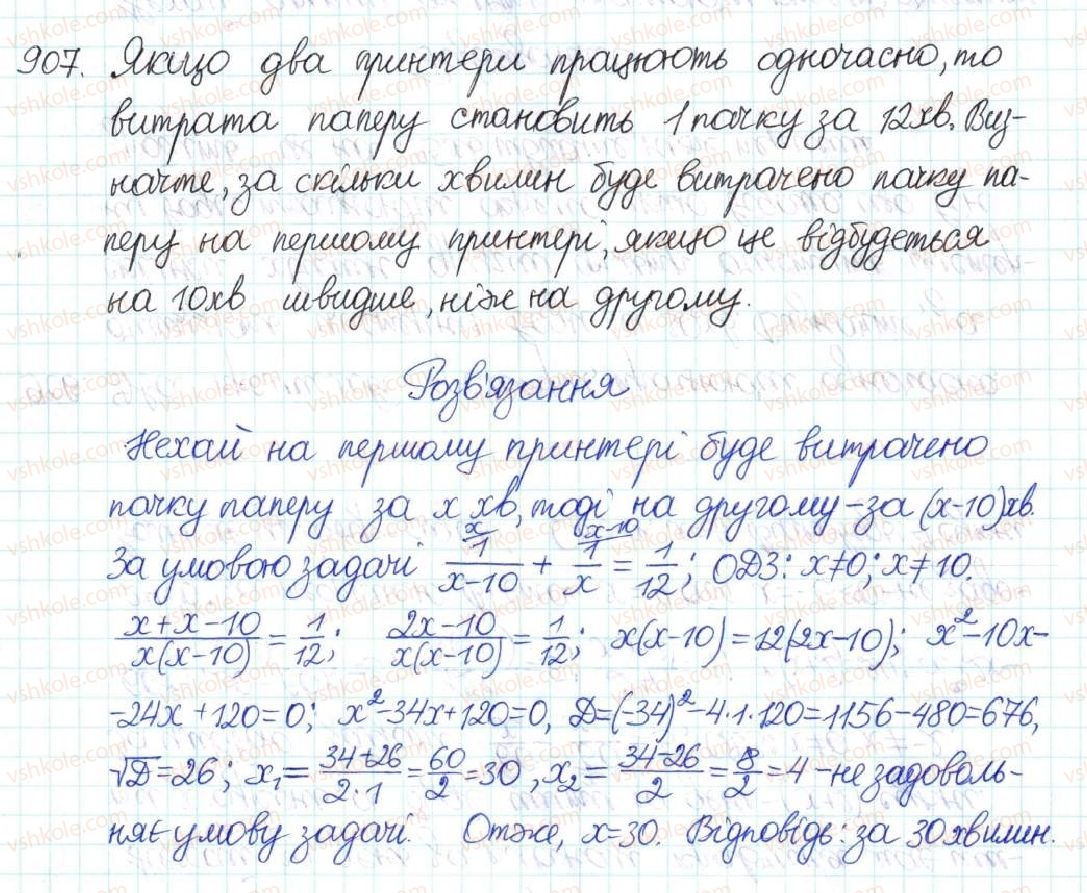 907. Якщо два принтери працюють одночасно, то
витрата паперу становить 1 пачку за 12хв. Виз-
начте, за скільки хвилин буде витрачено пачку па-
перу на першому принтері, якщо це відбудеться
на 10хв швидше, ніж на другому.
Розв'язання
Нехай на першому принтері буде витрачено
пачку паперу за x хв, тоді на другому – за (x-10)хв.
За умовою задачі x/ 1/(x-10) + x-10/ 1/x = 1/12; ОДЗ: x≠0; x≠10.
(x+x-10)/(x(x-10)) = 1/12; (2x-10)/(x(x-10)) = 1/12; x(x-10)=12(2x-10); x²-10x-
-24x+120=0; x²-34x+120=0, D=(-34)²-4·1·120=1156-480=676,
√D=26; x₁=(34+26)/(2·1)=60/2=30, x₂=(34-26)/2=8/2=4 – не задоволь-
няє умову задачі. Отже, x=30. Відповідь: за 30 хвилин.